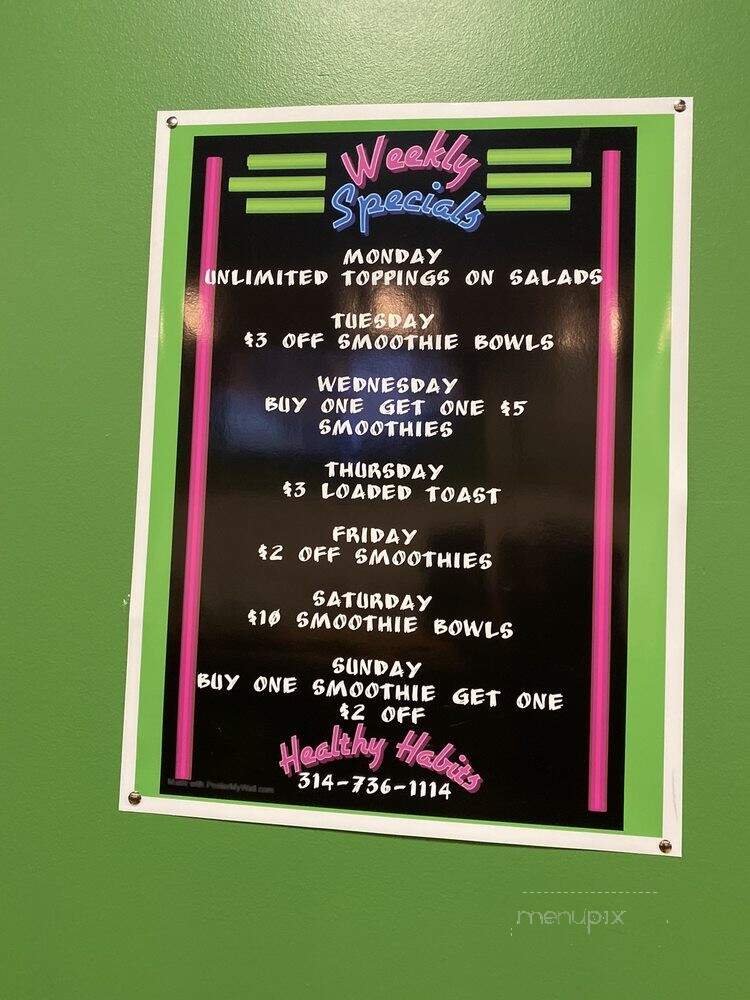 Weekly
Specials
MONDAY
UNLIMITED TOPPINGS ON SALADS
TUESDAY
$3 OFF SMOOTHIE BOWLS
WEDNESDAY
BUY ONE GET ONE $5
SMOOTHIES
THURSDAY
$3 LOADED TOAST
FRIDAY
$2 OFF SMOOTHIES
SATURDAY
$10 SMOOTHIE BOWLS
SUNDAY
BUY ONE SMOOTHIE GET ONE
$2 OFF
Healthy Habits
314-736-1114
Made with PosterMyWall.com
menupix